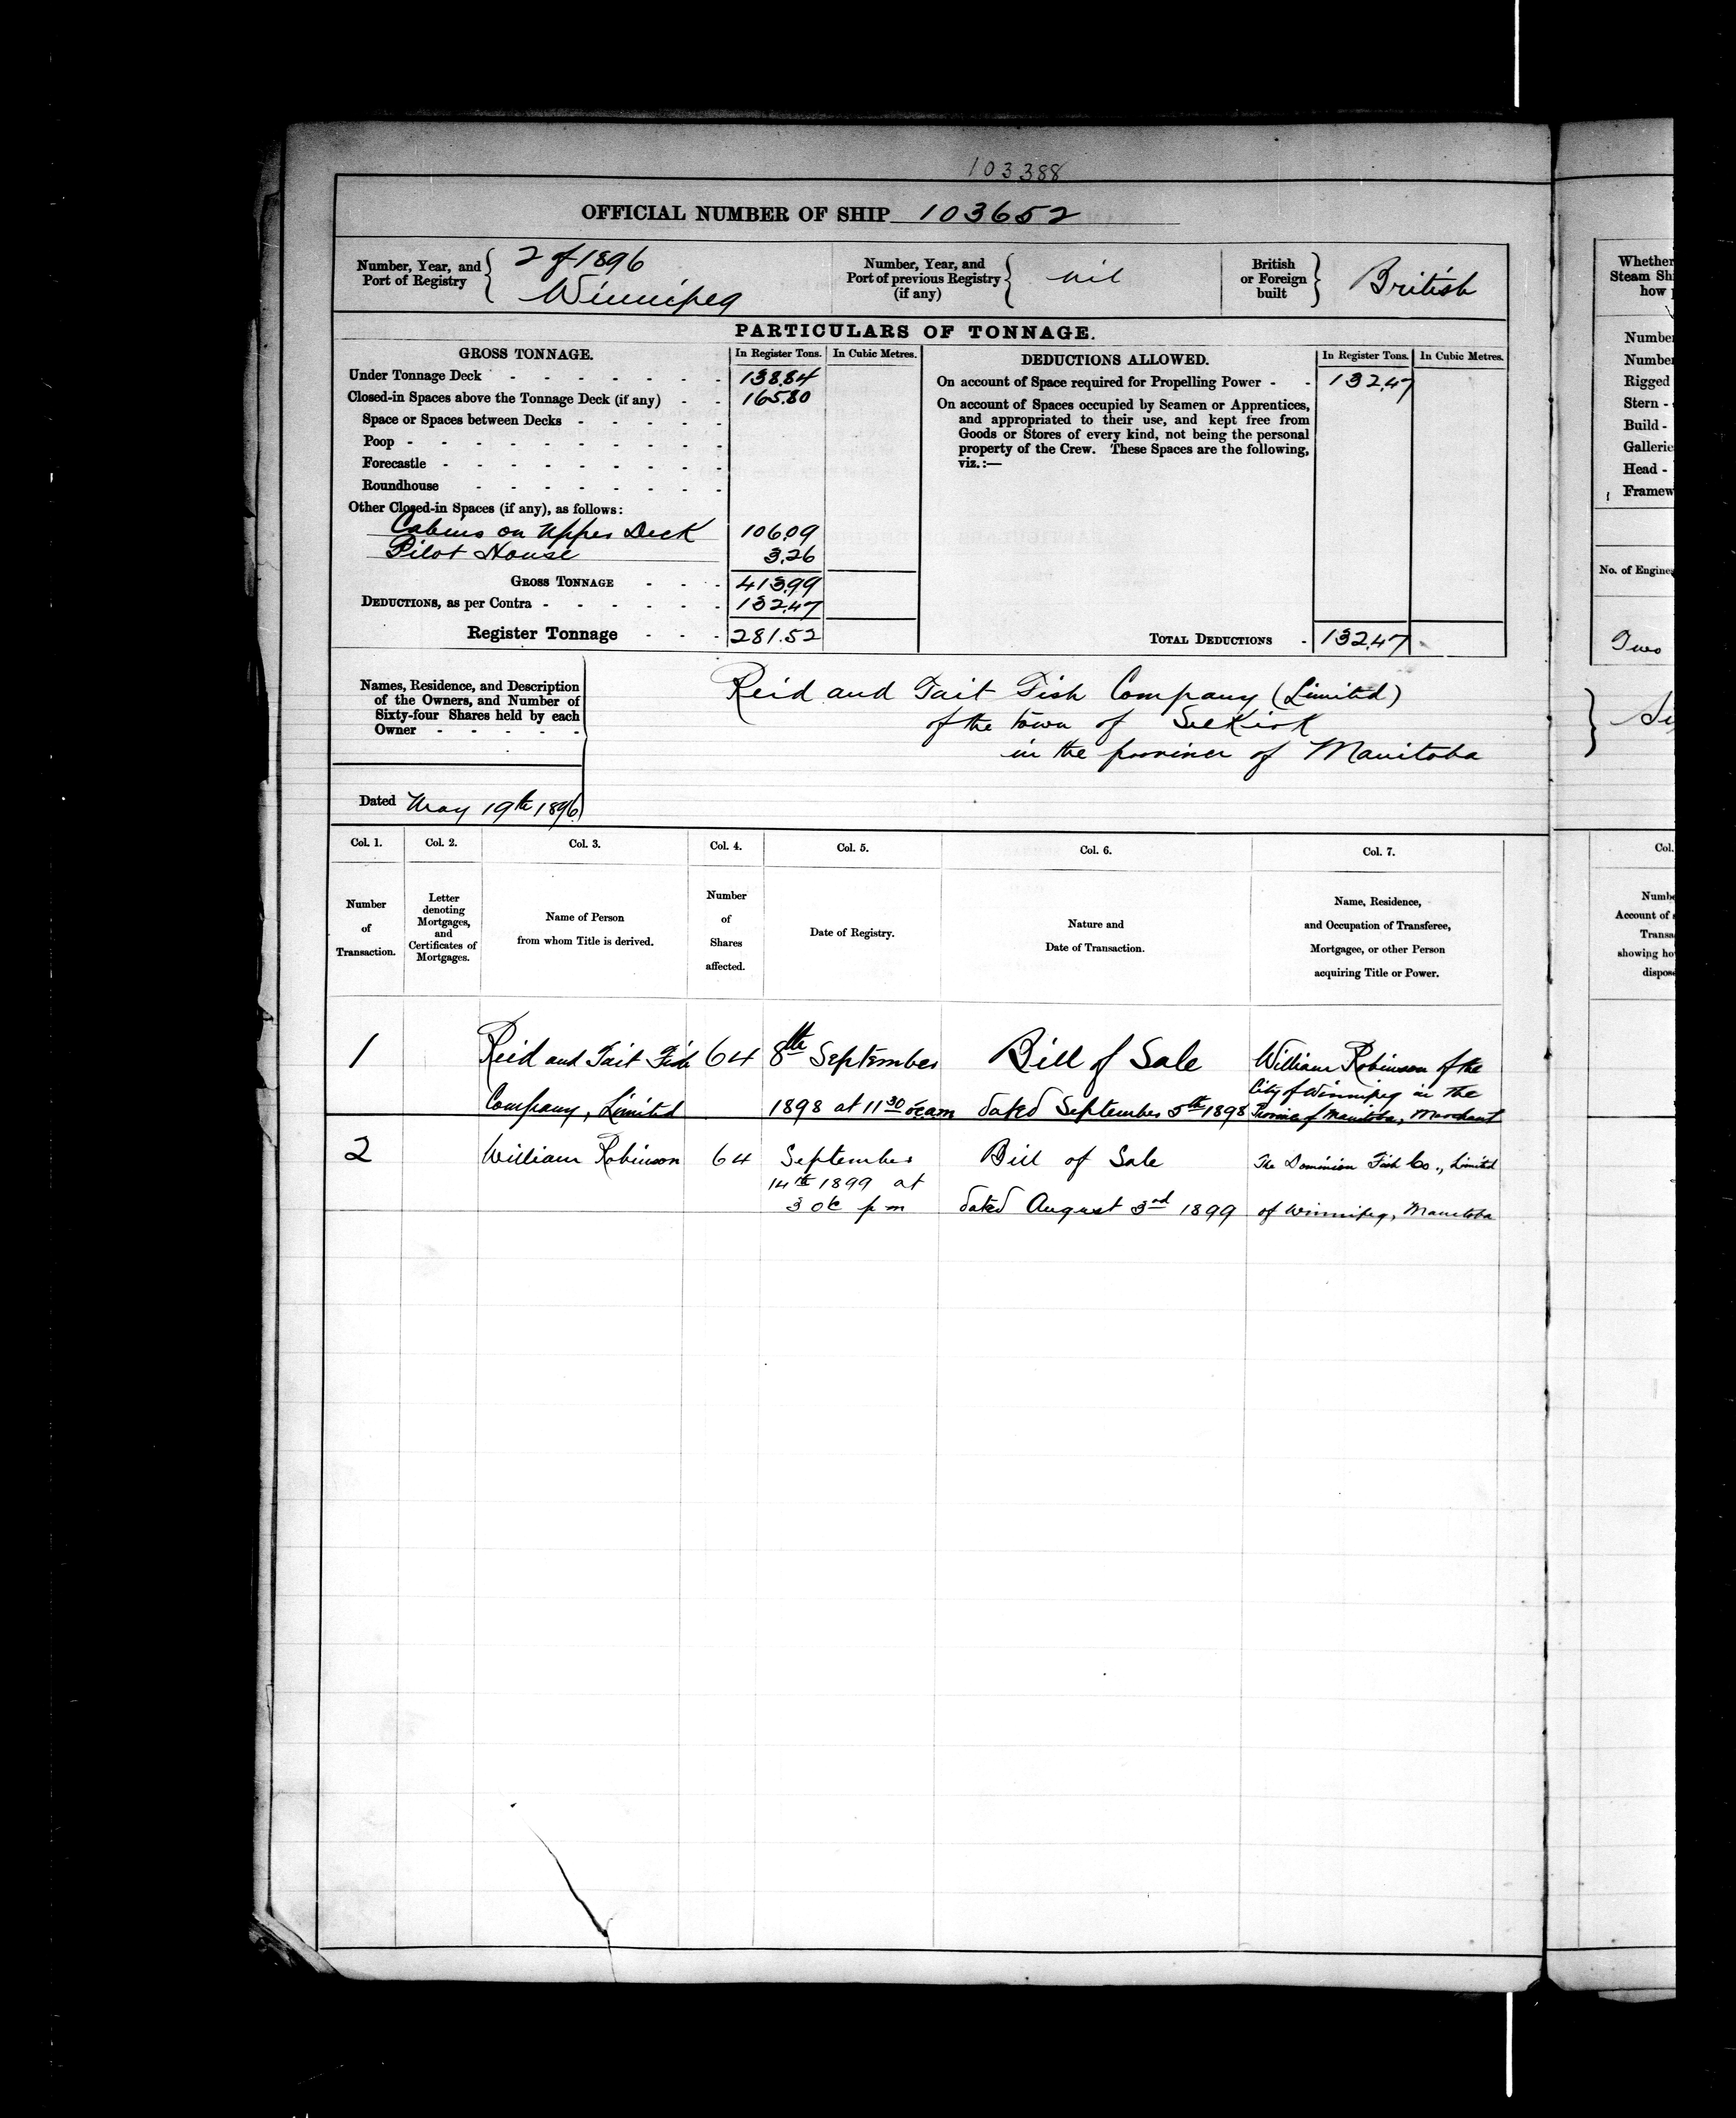 103388
OFFICIAL NUMBER OF SHIP 103652
Number, Year, and Port of Registry { 2 of 1896 Winnipeg
Number, Year, and Port of previous Registry (if any) { nil
British or Foreign built } British
PARTICULARS OF TONNAGE.
GROSS TONNAGE. In Register Tons. In Cubic Metres.
Under Tonnage Deck 138.84
Closed-in Spaces above the Tonnage Deck (if any) 165.80
Space or Spaces between Decks
Poop
Forecastle
Roundhouse
Other Closed-in Spaces (if any), as follows:
Cabins on Upper Deck 106.09
Pilot House 3.26
GROSS TONNAGE 413.99
DEDUCTIONS, as per Contra 132.47
Register Tonnage 281.52
DEDUCTIONS ALLOWED. In Register Tons. In Cubic Metres.
On account of Space required for Propelling Power 132.47
On account of Spaces occupied by Seamen or Apprentices,
and appropriated to their use, and kept free from
Goods or Stores of every kind, not being the personal
property of the Crew. These Spaces are the following,
viz.:—
TOTAL DEDUCTIONS 132.47
Names, Residence, and Description
of the Owners, and Number of
Sixty-four Shares held by each
Owner
Reid and Tait Fish Company (Limited)
of the town of Selkirk
in the province of Manitoba
Dated May 19th 1896
Col. 1. Col. 2. Col. 3. Col. 4. Col. 5. Col. 6. Col. 7.
Number
of
Transaction.
Letter
denoting
Mortgages,
and
Certificates of
Mortgages.
Name of Person
from whom Title is derived.
Number
of
Shares
affected.
Date of Registry.
Nature and
Date of Transaction.
Name, Residence,
and Occupation of Transferee,
Mortgagee, or other Person
acquiring Title or Power.
1 Reid and Tait Fish 64 8th September Bill of Sale William Robinson of the
City of Winnipeg in the
Company, Limited 1898 at 11 30 oc am dated September 5th 1898 Province of Manitoba, Merchant
2 William Robinson 64 September Bill of Sale The Dominion Fish Co., Limited
14th 1899 at
3 oc p m dated August 3rd 1899 of Winnipeg, Manitoba
Whether
Steam Sh
how
Number
Number
Rigged
Stern -
Build -
Gallerie
Head -
Framew
No. of Engine
Two
Col.
Numb
Account of
Transa
showing ho
dispos